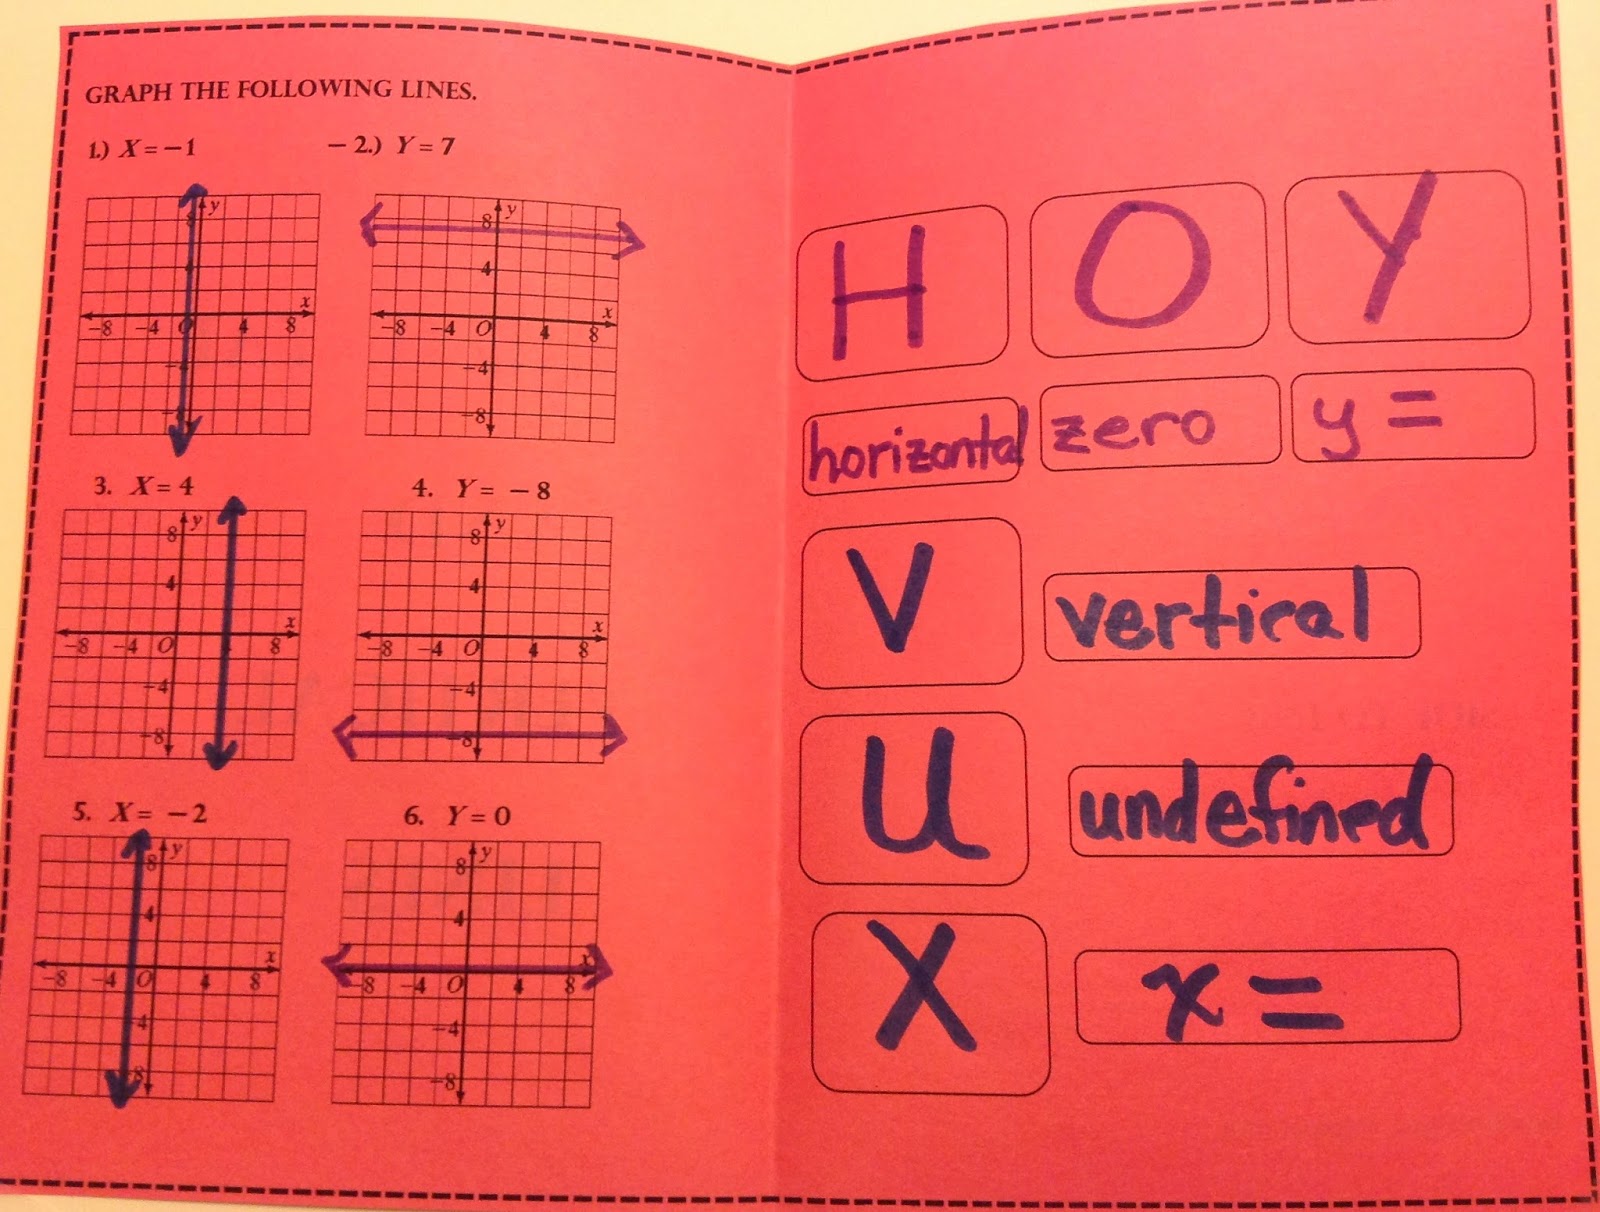 GRAPH THE FOLLOWING LINES.
1.) X = −1
− 2.) Y = 7
y
x
−8 −4 O 4 8
−4
y
8
4
x
−8 −4 O 4 8
−4
−8
3. X = 4
4. Y = − 8
y
8
4
x
−8 −4 O 8
−4
−8
y
8
4
x
−8 −4 O 4 8
−4
−8
5. X = − 2
6. Y = 0
y
8
4
x
−8 −4 O 4 8
−4
−8
y
8
4
x
−8 −4 O 4 8
−4
−8
H O Y
horizontal zero y =
V vertical
U undefined
X x =